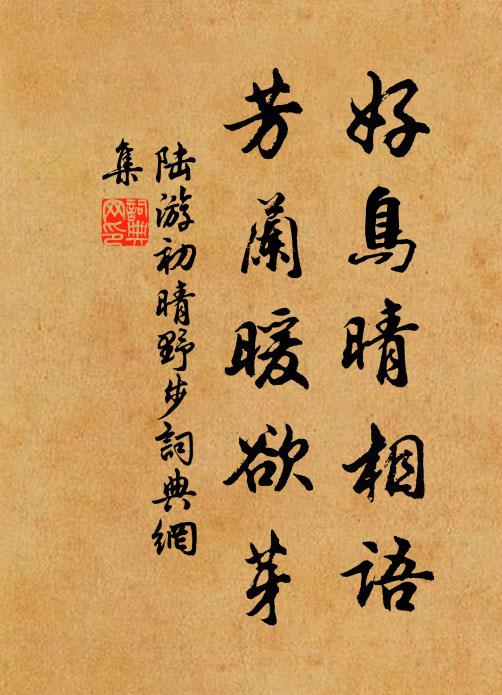 好鳥晴相語
芳蘭暖欲芽
陸游初晴野步詞典網
集
詞典
网印